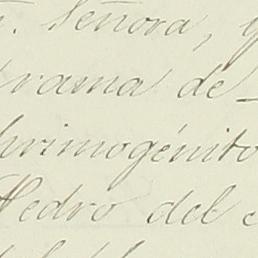 Señora, y
rama de
primogénito
Pedro del